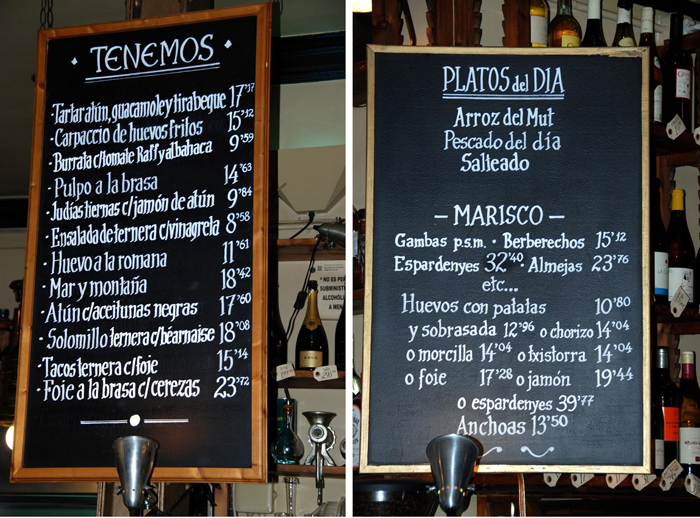 TENEMOS
· Tartar atún, guacamole y tirabeque 17'17
· Carpaccio de huevos fritos 15'12
· Burrata c/tomate Raff y albahaca 9'59
· Pulpo a la brasa 14'63
· Judías tiernas c/jamón de atún 9'84
· Ensalada de ternera c/vinagreta 8'58
· Huevo a la romana 11'61
· Mar y montaña 18'42
· Atún c/aceitunas negras 17'60
· Solomillo ternera c/béarnaise 18'08
· Tacos ternera c/foie 15'14
· Foie a la brasa c/cerezas 23'72
NO ES
ALCOHOL
PLATOS del DIA
Arroz del Mut
Pescado del día
Salteado
- MARISCO -
Gambas p.s.m. · Berberechos 15'12
Espardenyes 32'40 · Almejas 23'76
etc...
Huevos con patatas 10'80
y sobrasada 12'96 o chorizo 14'04
o morcilla 14'04 o txistorra 14'04
o foie 17'28 o jamón 19'44
o espardenyes 39'77
Anchoas 13'50